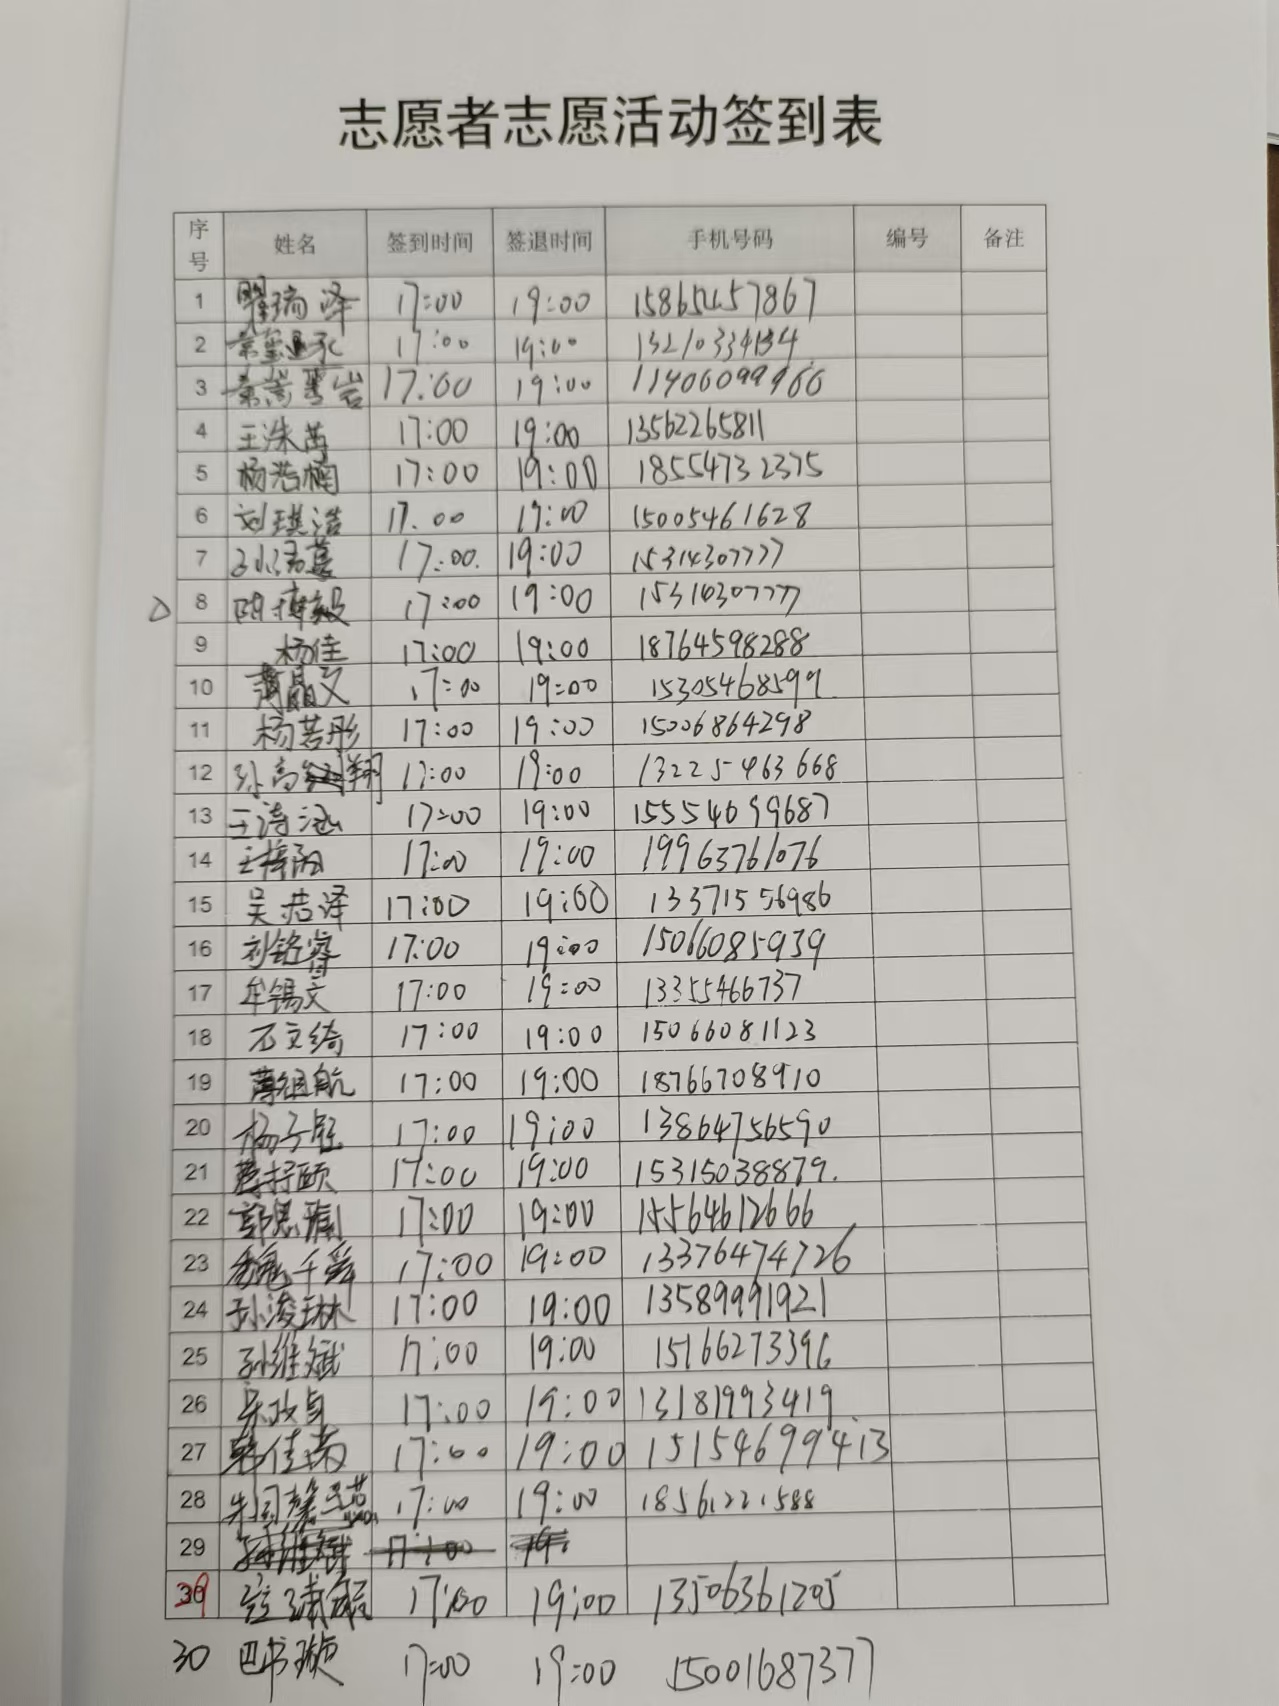 志愿者志愿活动签到表
序号 姓名 签到时间 签退时间 手机号码 编号 备注
1 瞿瑞泽 17:00 19:00 15865457867
2 17:00 19:00 13210334134
3 17:00 19:00 11406099966
4 王洙芮 17:00 19:00 13562265811
5 杨浩楠 17:00 19:00 18554732375
6 刘琪浩 17.00 19:00 15005461628
7 17:00. 19:00 15314307777
8 17:00 19:00 15314307777
9 杨佳 17:00 19:00 18764598288
10 17:00 19:00 15305468599
11 杨若彤 17:00 19:00 15006864298
12 孙高翔 17:00 19:00 13225463668
13 王涛涵 17:00 19:00 15554699687
14 王梓阳 17:00 19:00 19963761076
15 吴浩泽 17:00 19:00 13371556986
16 刘铭睿 17:00 19:00 15066085939
17 牟锡文 17:00 19:00 13355466737
18 石文绮 17:00 19:00 15066081123
19 17:00 19:00 18766708910
20 17:00 19:00 13864756590
21 17:00 19:00 15315038879.
22 郭思瑜 17:00 19:00 15564612666
23 17:00 19:00 13376474726
24 孙浚琳 17:00 19:00 13589991921
25 孙维斌 17:00 19:00 15166273396
26 17:00 19:00 13181993419
27 17:00 19:00 15154699413
28 17:00 19:00 18561221588
29 孙维斌 17:00 19:
29 17:00 19:00 13506361205
30 巴书璇 17:00 19:00 15001687377